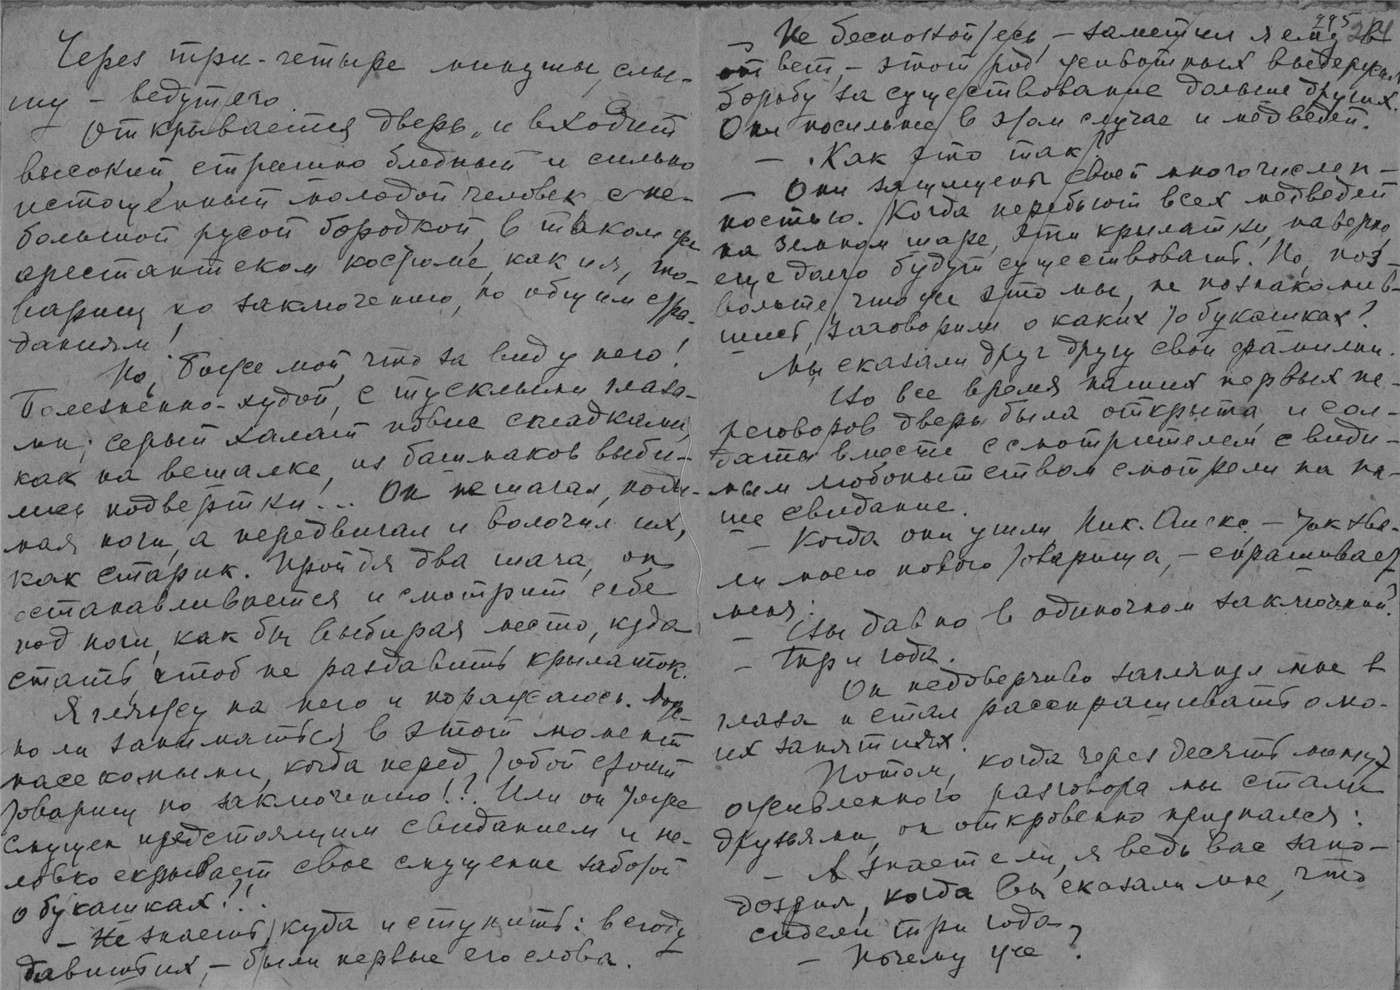 Через три-четыре минуты, слы-
шу – ведут его.
Открывается дверь, и входит
высокий, страшно бледный и сильно
истощенный молодой человек с не-
большой русой бородкой, в таком же
арестантском костюме, как и я, то-
варищ по заключению, по общим стра-
даниям!
Но, Боже мой, что за вид у него!
Болезненно-худой, с тусклыми глаза-
ми; серый халат повис складками,
как на вешалке, из башмаков выби-
лись подвертки... Он не шагал, поды-
мая ноги, а передвигал и волочил их,
как старик. Пройдя два шага, он
останавливается и смотрит себе
под ноги, как бы выбирая место, куда
стать, чтоб не раздавить крылаток.
Я гляжу на него и поражаюсь. Мож-
но ли заниматься в этот момент
насекомыми, когда перед тобой стоит
товарищ по заключению!! Или он тоже
смущен предстоящим свиданием и не-
ловко скрывает свое смущение заботой
о букашках?!.
– Не знаешь, куда и ступить: всюду
давишь их, – были первые его слова.
995
– Не беспокойтесь, – заметил я ему в
ответ, – этот род животных выдержал
борьбу за существование дольше других.
Они посильнее в этом случае и медведей.
– Как это так?
– Они защищены своей многочислен-
ностью. Когда перебьют всех медведей
на земном шаре, эти крылатки, наверно,
еще долго будут существовать. Но, поз-
вольте, что же это мы, не познакомив-
шись, заговорили о каких то букашках?
Мы сказали друг другу свои фамилии.
Во все время наших первых пе-
реговоров дверь была открыта, и сол-
даты вместе с смотрителем с види-
мым любопытством смотрели на на-
ше свидание.
– Когда они ушли, Ник. – так зва-
ли моего нового товарища, – спрашивает
меня:
– Вы давно в одиночном заключении?
– Три года.
Он недоверчиво заглянул мне в
глаза и стал расспрашивать о мо-
их занятиях.
Потом, когда через десять минут
оживленного разговора мы стали
друзьями, он откровенно признался:
– А знаете ли, я ведь вас запо-
дозрил, когда Вы сказали мне, что
сидели три года.
– Почему же?